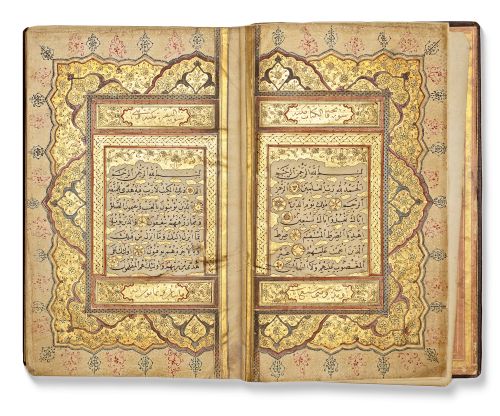 بسم الله الرحمن الرحيم
الحمد لله رب العالمين الرحمن
الرحيم مالك يوم الدين
اياك نعبد واياك نستعين
اهدنا الصراط المستقيم صراط
الذين انعمت عليهم غير
المغضوب عليهم ولا الضالين
بسم الله الرحمن الرحيم
الم ذلك الكتاب لا ريب فيه هدى للمتقين
الذين يؤمنون بالغيب ويقيمون الصلوة
ومما رزقناهم ينفقون والذين يؤمنون
بما انزل اليك وما انزل من قبلك
وبالاخرة هم يوقنون اولئك على
هدى من ربهم واولئك هم المفلحون